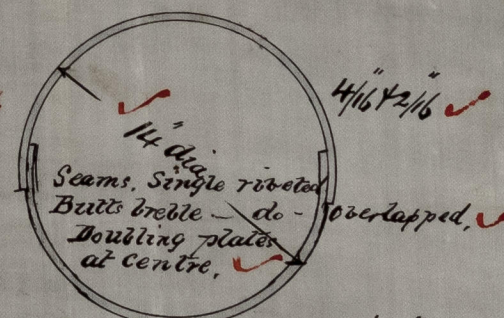 4/16" & 2/16"
14" dia
Seams. Single riveted
Butts treble — do - overlapped.
Doubling plates
at centre.